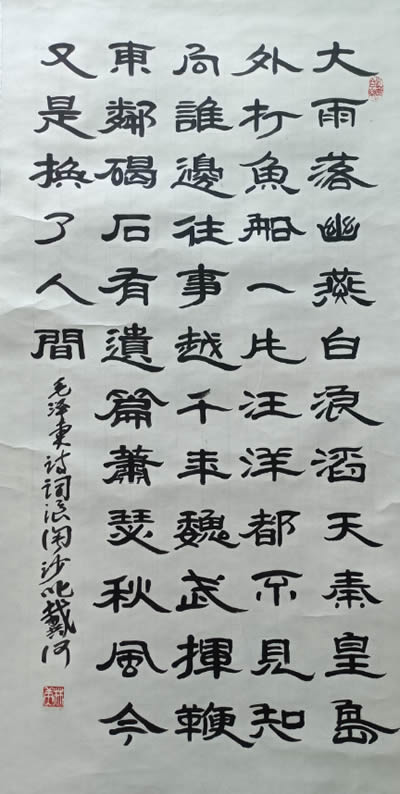 大雨落幽燕白浪滔天秦皇島
外打魚船一片汪洋都不見知
向誰邊往事越千年魏武揮鞭
東鄰碣石有遺篇蕭瑟秋風今
又是换了人間
毛泽東诗词浪淘沙北戴河